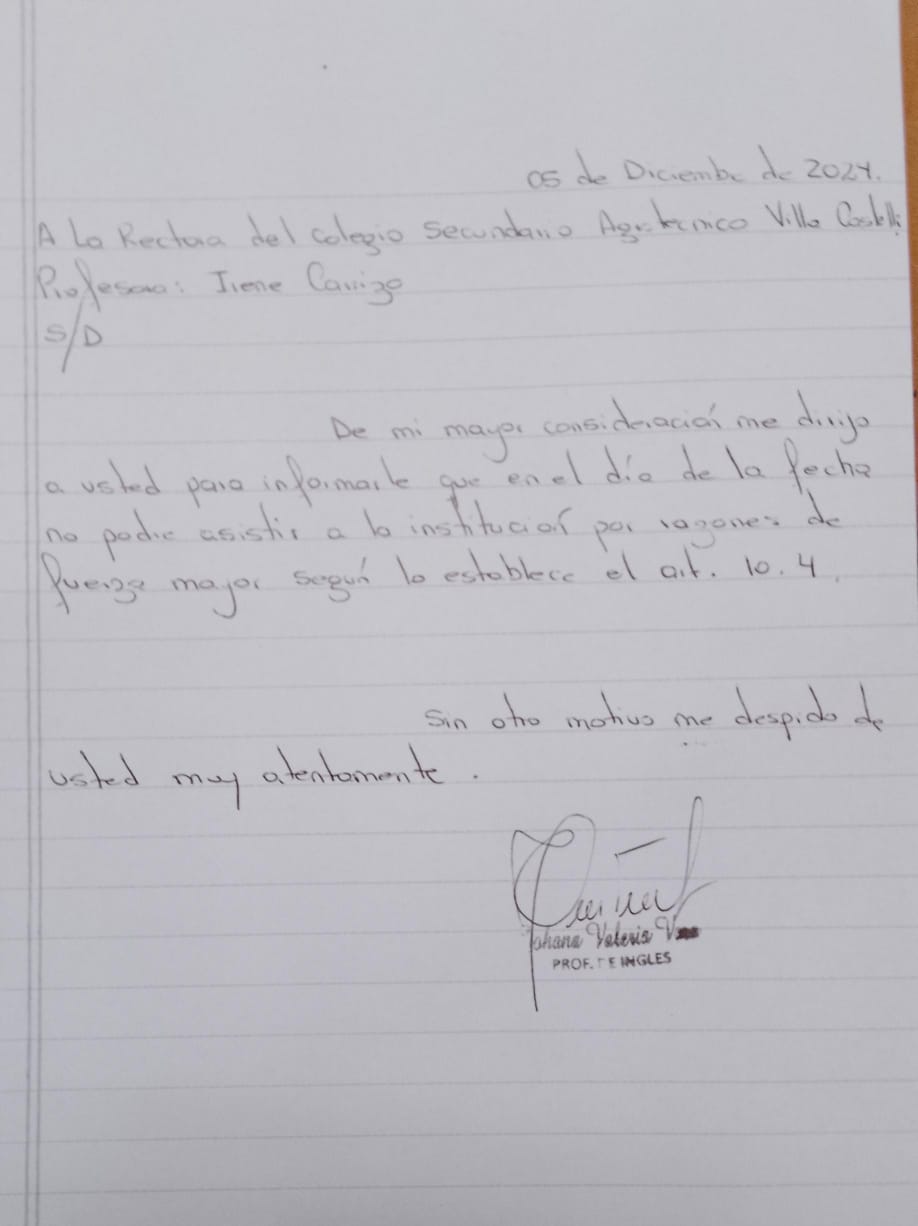 05 de Diciembre de 2024.
A La Rectora del colegio Secundario Agrotecnico Villa Castelli
Profesora: Irene Carrizo
S/D
De mi mayor consideración me dirijo
a usted para informarle que en el día de la fecha
no podre asistir a la institución por razones de
fuerza mayor según lo establece el art. 10.4.
Sin otro motivo me despido de
usted muy atentamente.
Johana Valeria
PROF. DE INGLES